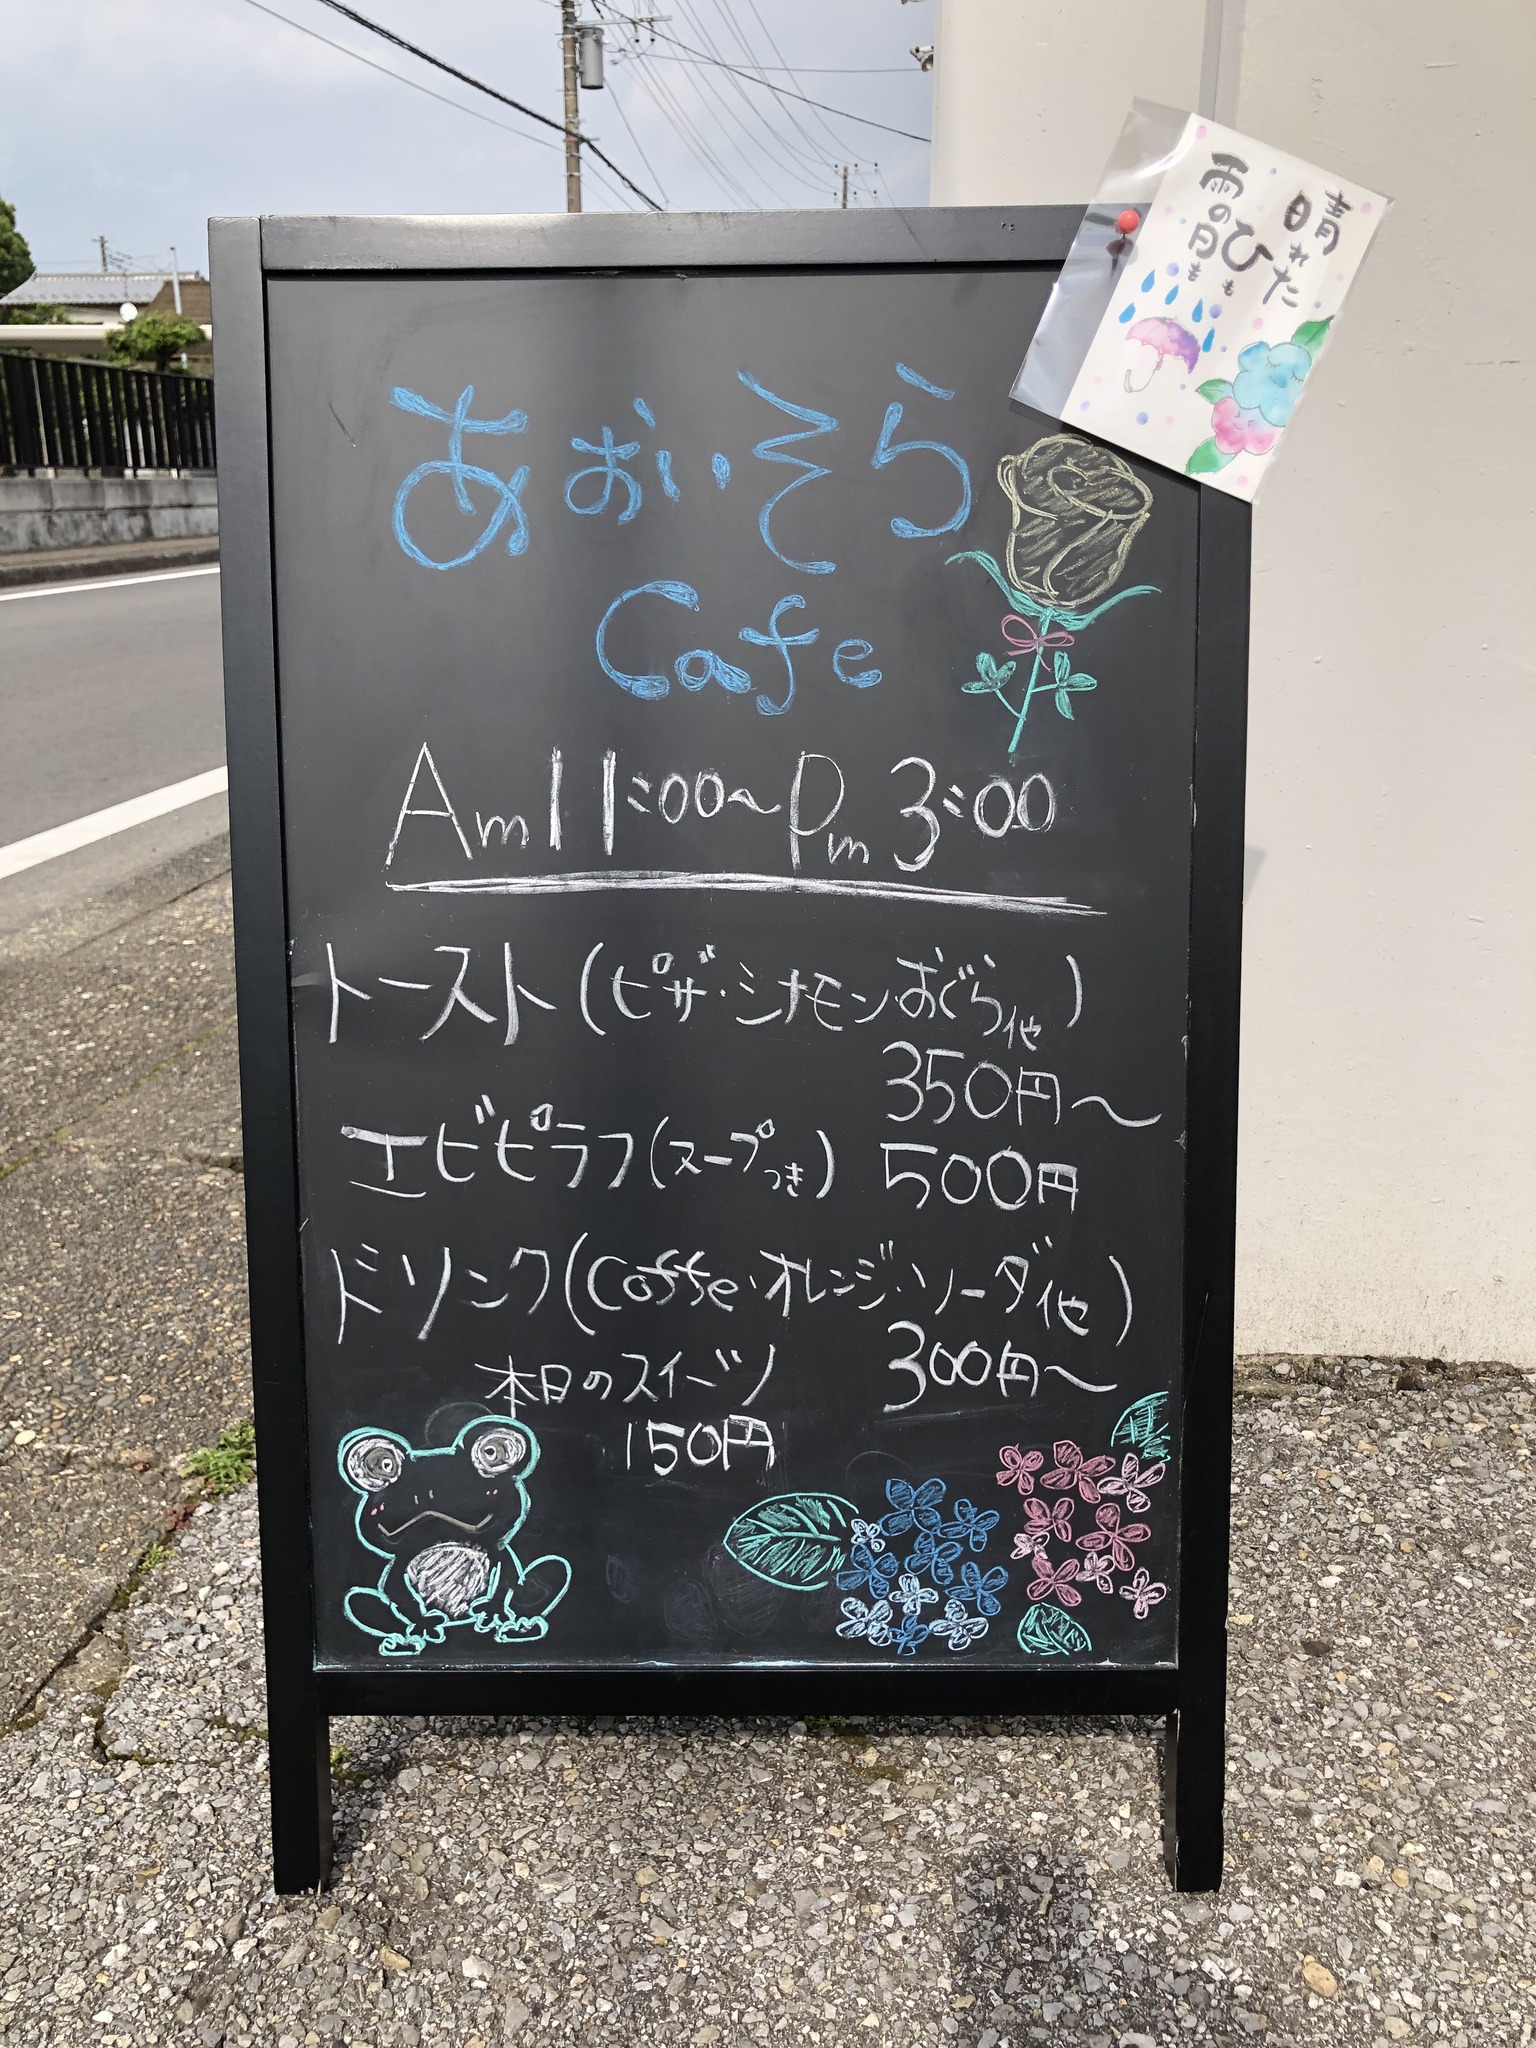 あおいそら
Cafe
Am11:00~Pm3:00
トースト(ピザ・シナモン・おぐら他)
350円~
エビピラフ(スープつき) 500円
ドリンク(Coffee・オレンジ・ソーダ他)
300円~
本日のスイーツ
150円
晴れた
ひも
雨の日も